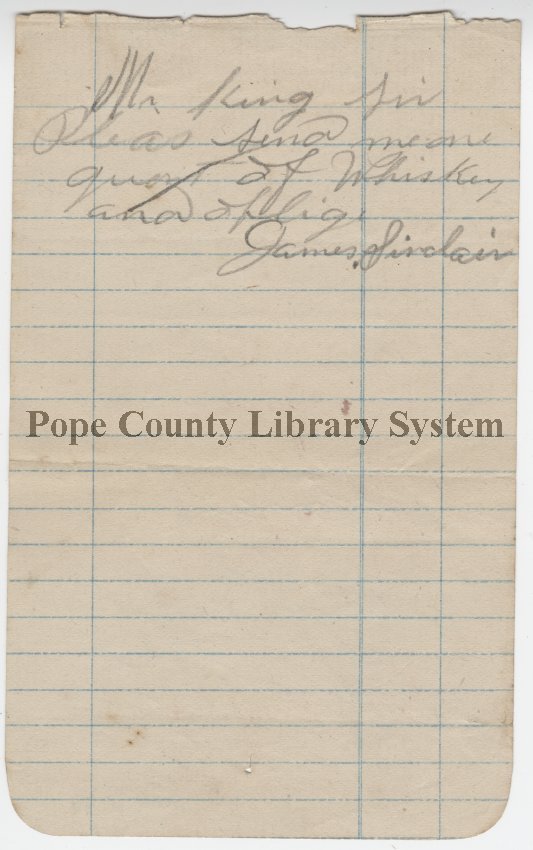 Mr King Sir
Pleas send me one
quort of Whiskey
and oblige
James Sinclair
Pope County Library System